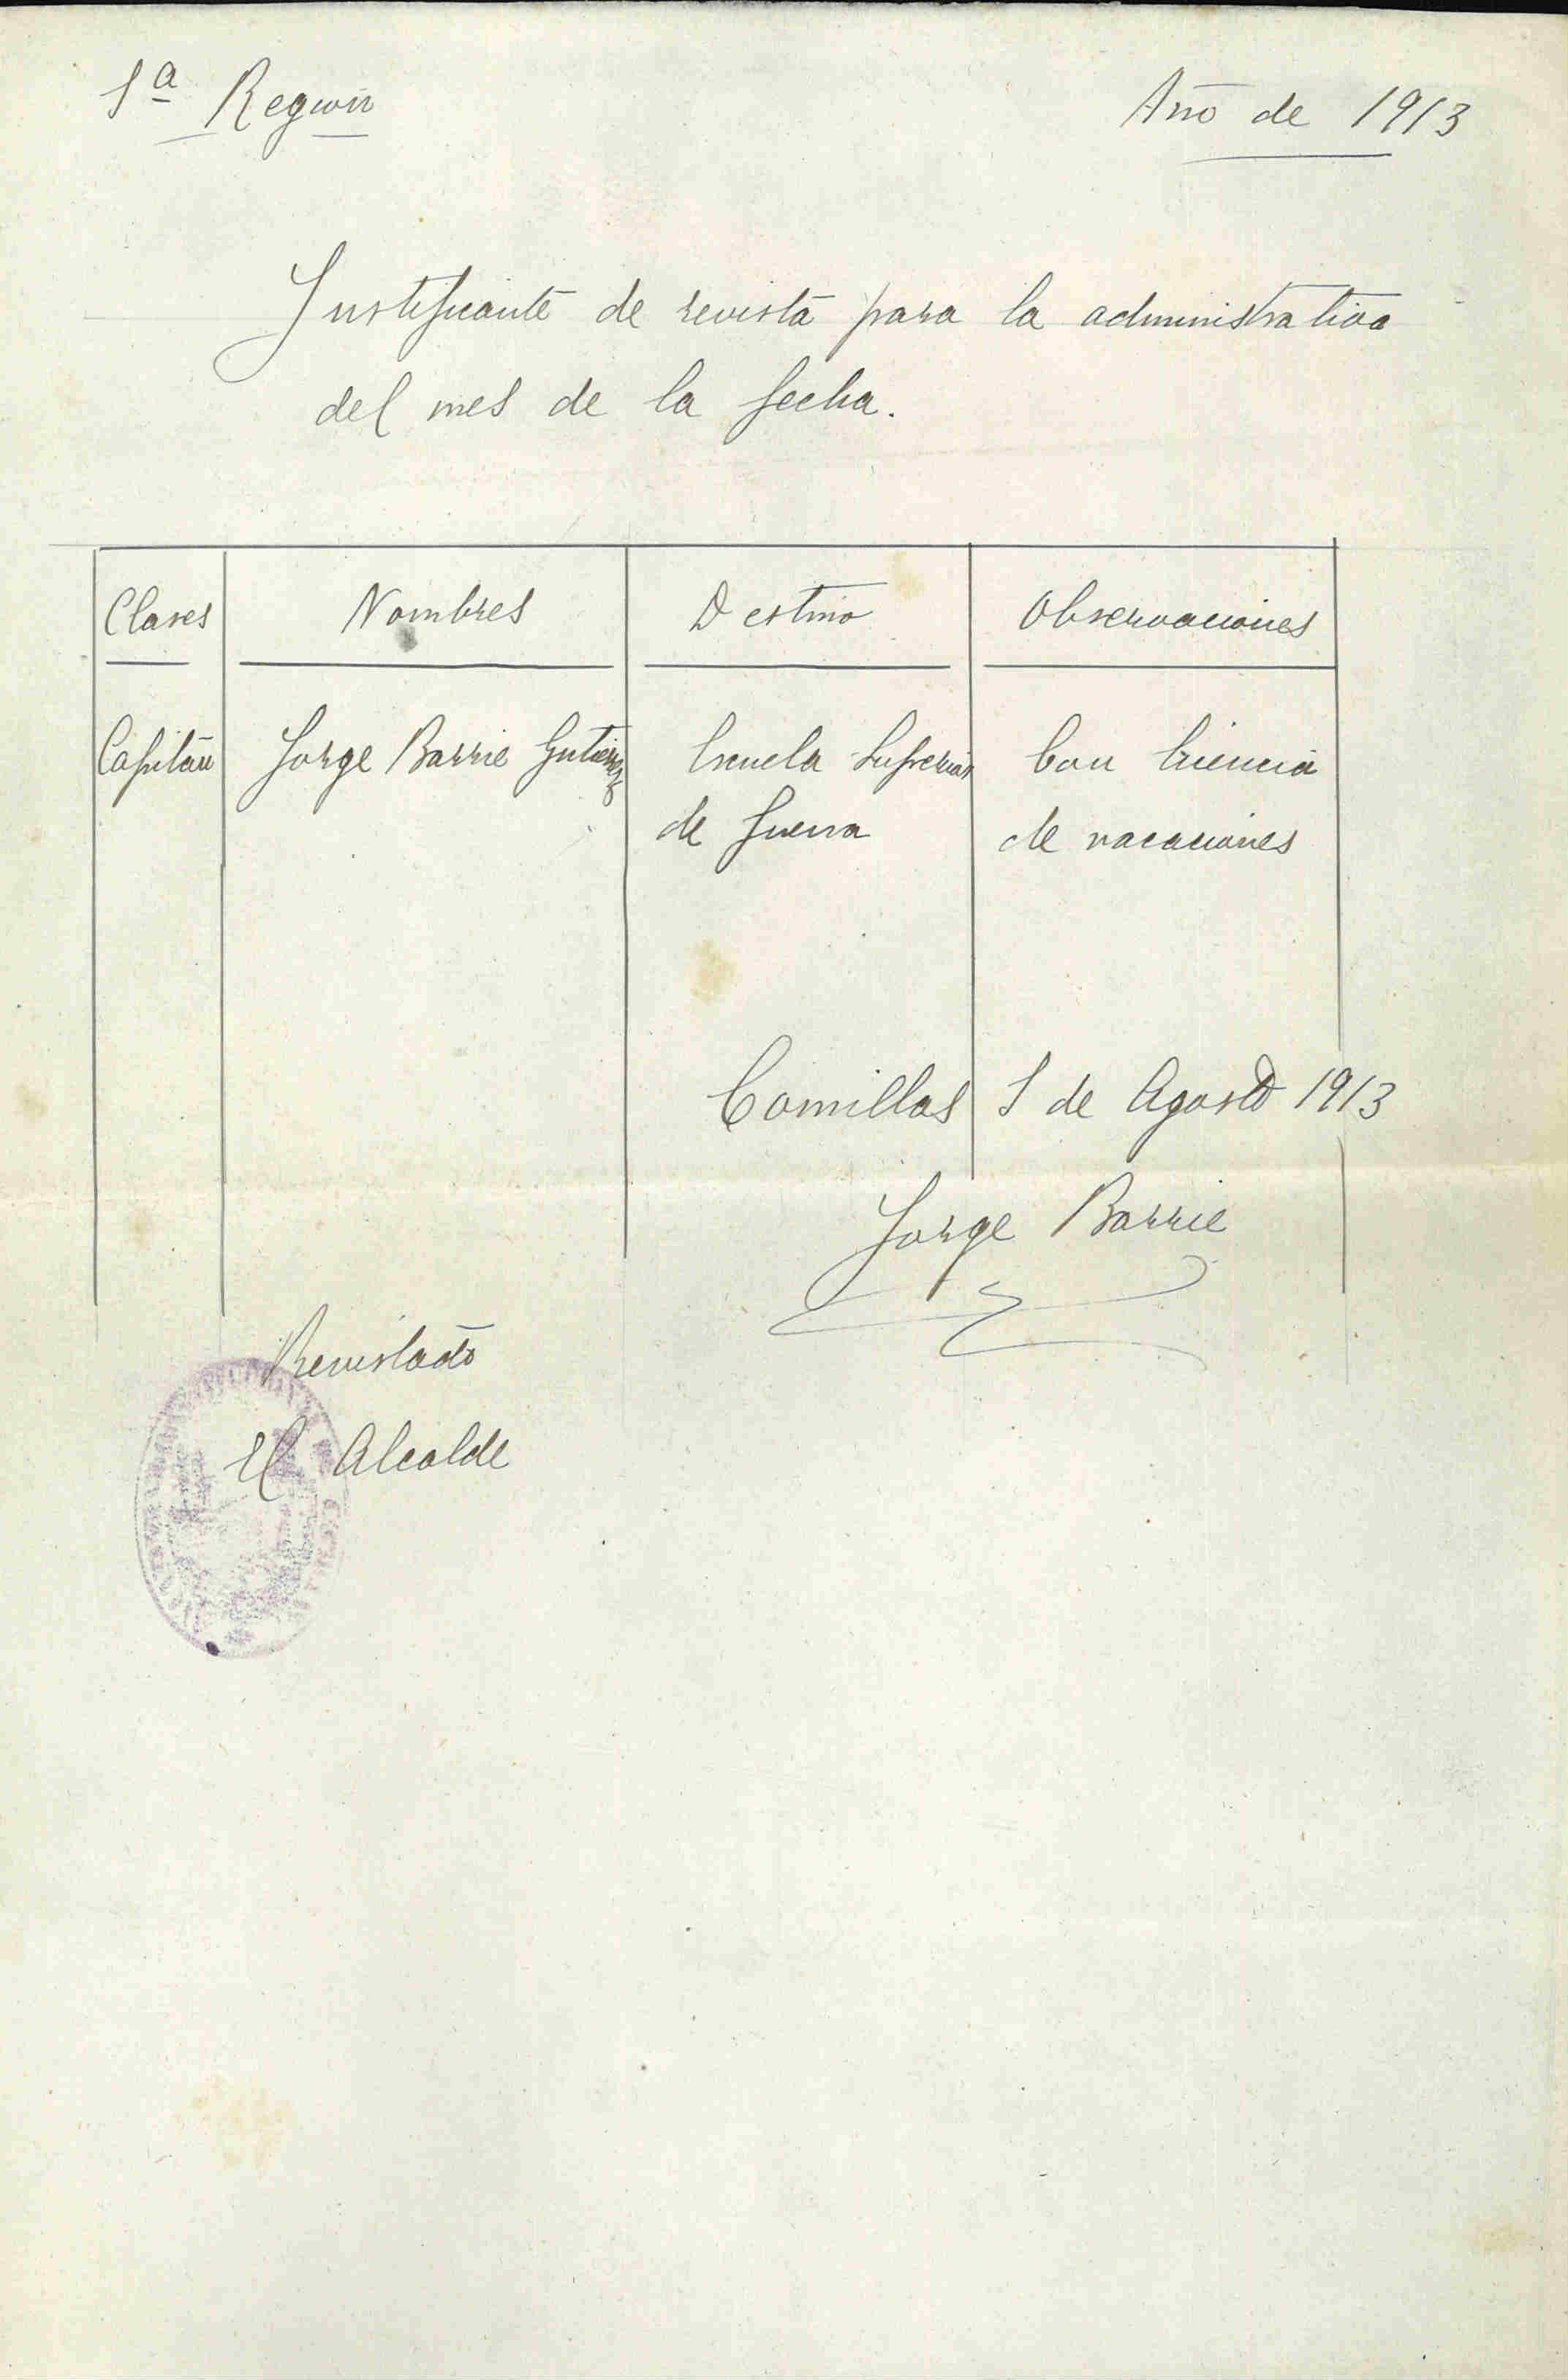 1ª Region
Año de 1913
Justificante de revista para la administrativa
del mes de la fecha.
Clases Nombres Destino Observaciones
Capitán Jorge Barrie Gutierrez Escuela Superior Con licencia
de Guerra de vacaciones
Comillas 1 de Agosto 1913
Jorge Barrie
Revistado
El Alcalde